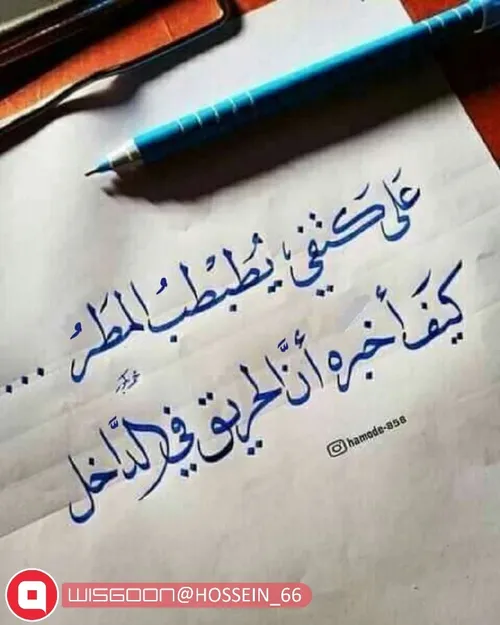 عَلى كَتفي، يُطَبْطبُ المَطَرُ ...
كيفَ أخبره أنَّ الحريق في الدَّاخل
hamode-856
WISGOON@HOSSEIN_66